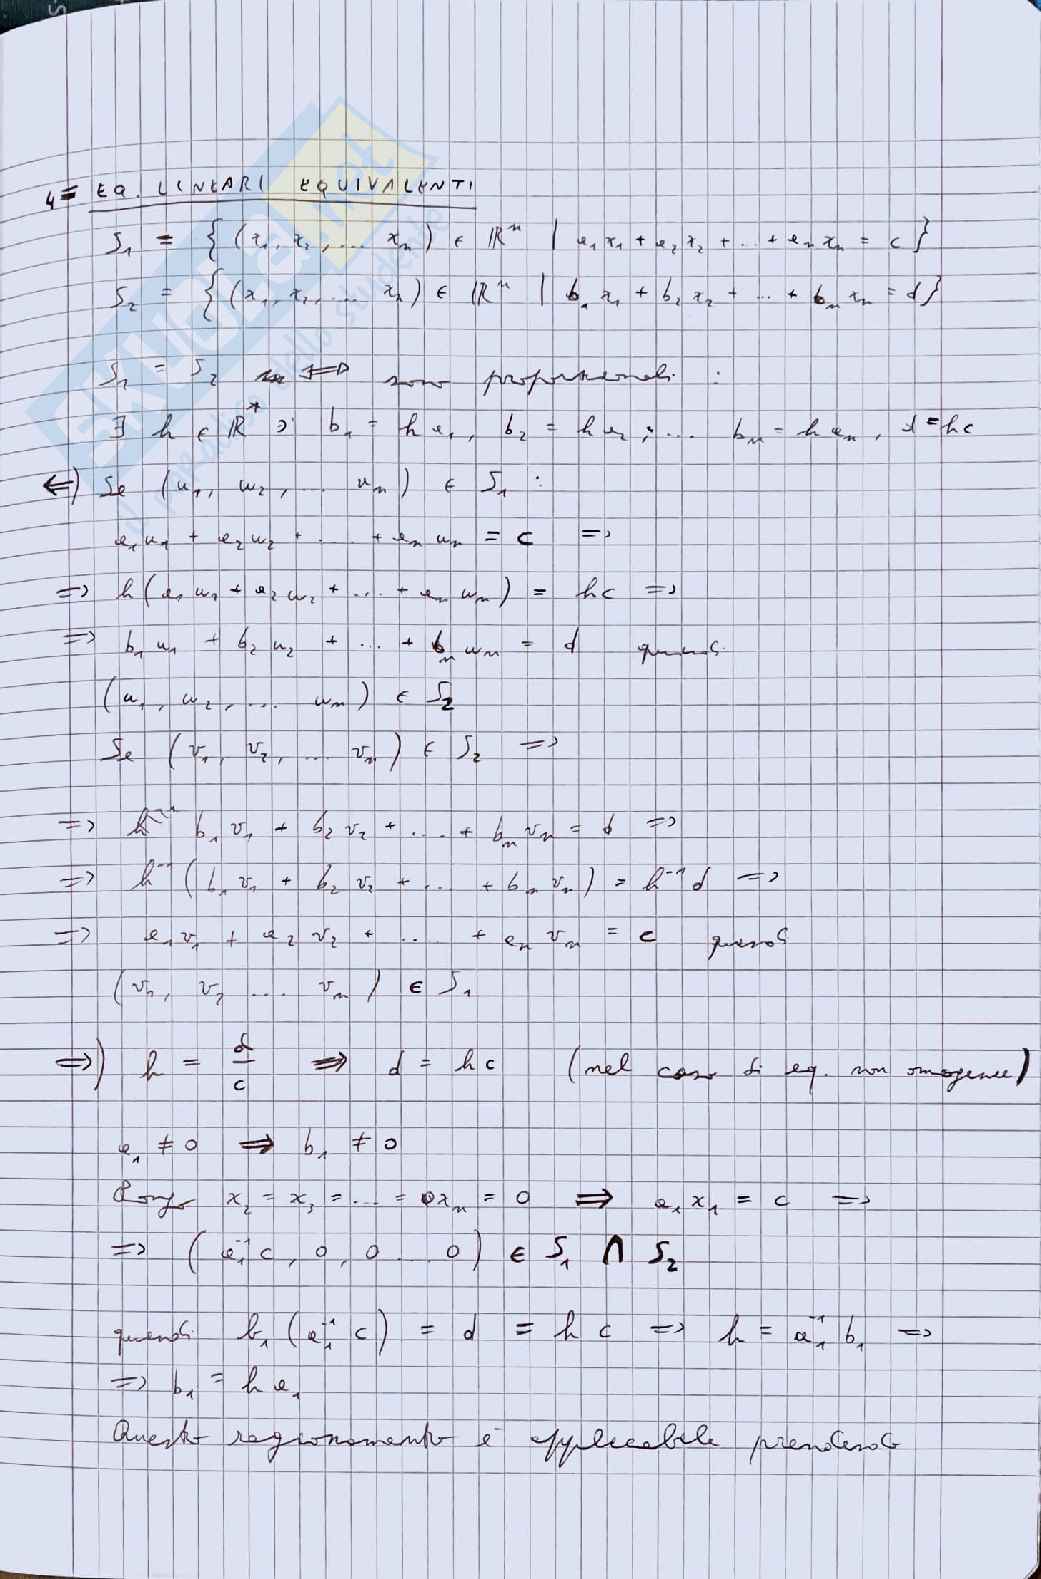 4= EQ. LINEARI EQUIVALENTI
S₁ = { (x₁, x₂, ... xₙ) ∈ ℝⁿ | a₁x₁ + a₂x₂ + ... + aₙxₙ = c }
S₂ = { (x₁, x₂, ... xₙ) ∈ ℝⁿ | b₁x₁ + b₂x₂ + ... + bₙxₙ = d }
S₁ = S₂ ⟺ sono proporzionali :
∃ h ∈ ℝ* ∋' b₁ = h a₁, b₂ = h a₂, ... bₙ = h aₙ, d = hc
⇐) Se (u₁, u₂, ... uₙ) ∈ S₁ :
a₁u₁ + a₂u₂ + ... + aₙuₙ = c =>
=> h(a₁u₁ + a₂u₂ + ... + aₙuₙ) = hc =>
=> b₁u₁ + b₂u₂ + ... + bₙuₙ = d quindi
(u₁, u₂, ... uₙ) ∈ S₂
Se (v₁, v₂, ... vₙ) ∈ S₂ =>
=> b₁v₁ + b₂v₂ + ... + bₙvₙ = d =>
=> h⁻¹(b₁v₁ + b₂v₂ + ... + bₙvₙ) = h⁻¹d =>
=> a₁v₁ + a₂v₂ + ... + aₙvₙ = c quindi
(v₁, v₂ ... vₙ) ∈ S₁
⇒) h = d/c ⇒ d = hc (nel caso di eq. non omogenee)
a₁ ≠ 0 ⇒ b₁ ≠ 0
Pongo x₂ = x₃ = ... = xₙ = 0 ⇒ a₁x₁ = c =>
=> (a₁⁻¹c, 0, 0 ... 0) ∈ S₁ ∩ S₂
quindi b₁(a₁⁻¹c) = d = hc => h = a₁⁻¹b₁ =>
=> b₁ = h a₁
Questo ragionamento è applicabile prendendo